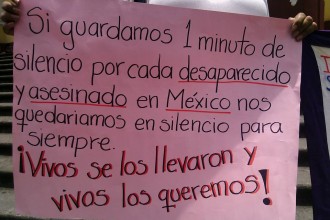 Si guardamos 1 minuto de
silencio por cada desaparecido
y asesinado en México nos
quedariamos en silencio para
siempre.
¡Vivos se los llevaron y
vivos los queremos!